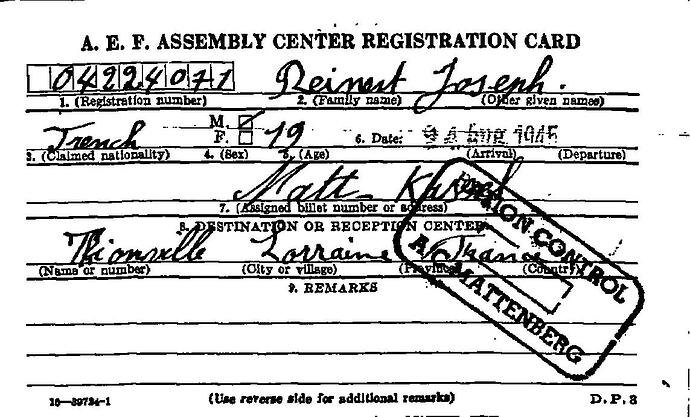 A. E. F. ASSEMBLY CENTER REGISTRATION CARD
04224071 Reinert Joseph.
1. (Registration number) 2. (Family name) (Other given names)
M.
French F. 19 6. Date: 24 AUG 1945
3. (Claimed nationality) 4. (Sex) 5. (Age) (Arrival) (Departure)
Matt
7. (Assigned billet number or address)
8. DESTINATION OR RECEPTION CENTER
Thionville Lorraine France
(Name or number) (City or village) (Province) (Country)
CONTROL
MATTENBERG
9. REMARKS
16—39734-1 (Use reverse side for additional remarks) D.P. 3